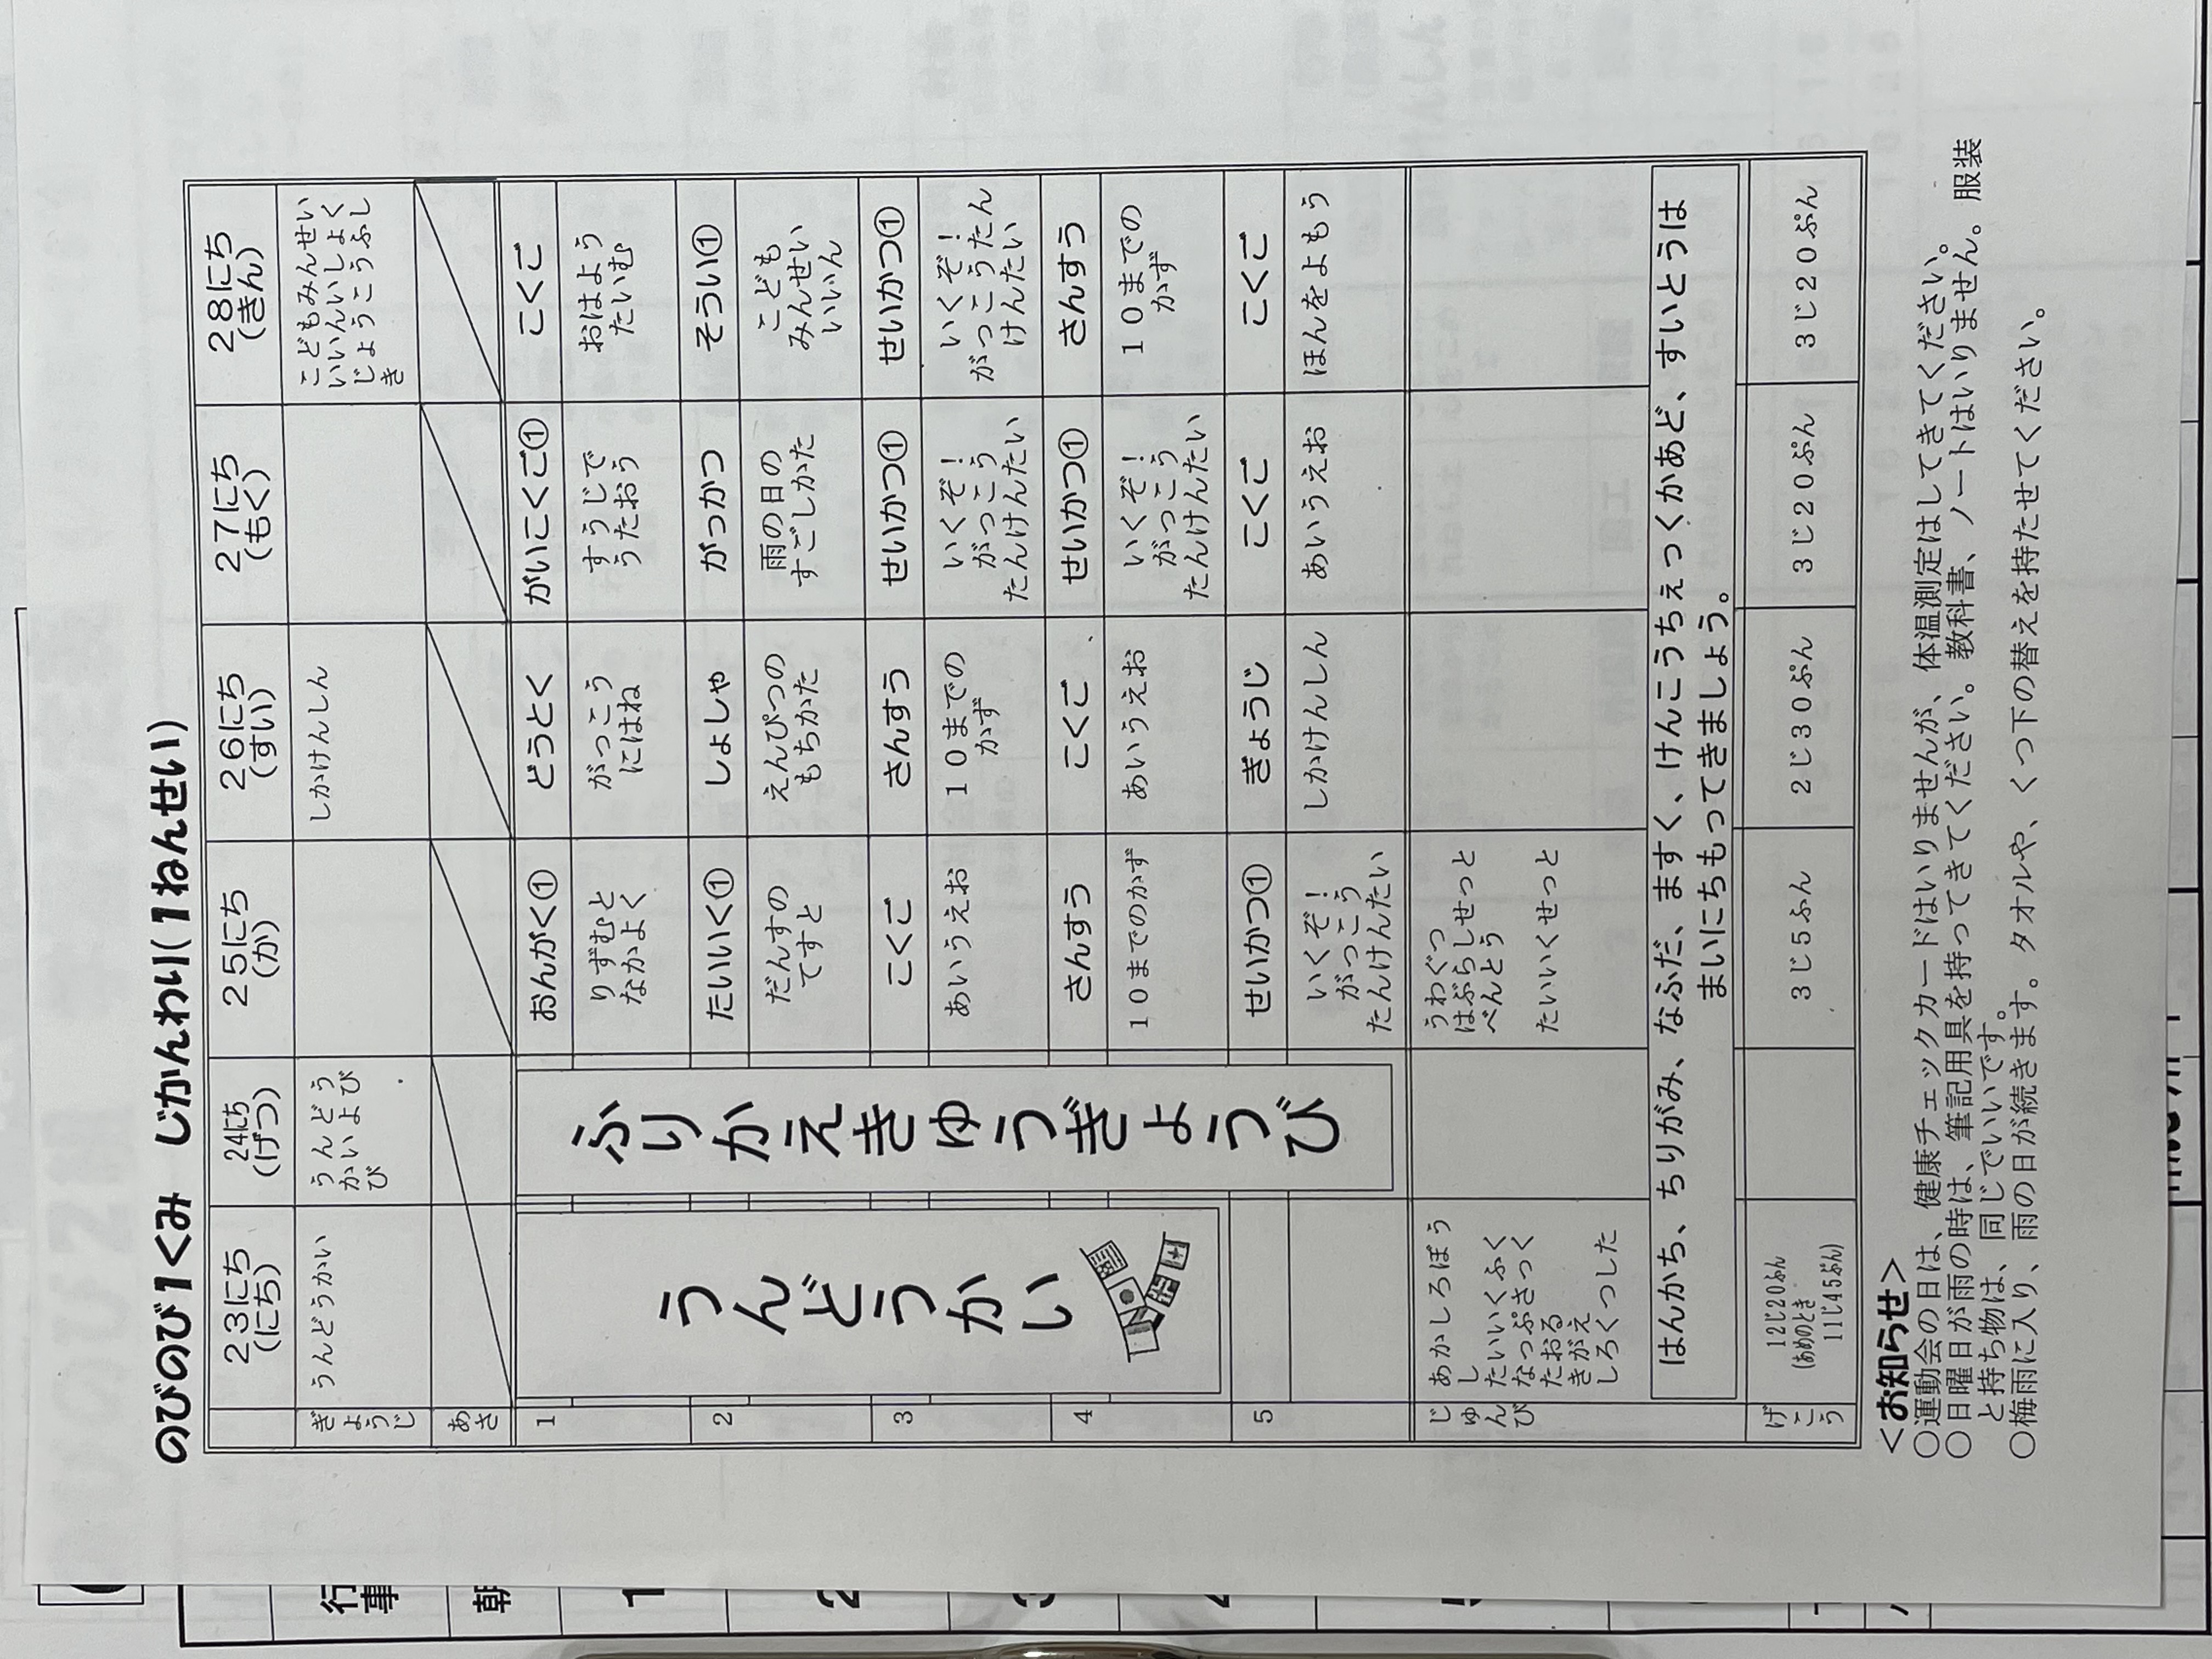 のびのび1くみ じかんわり(1ねんせい)
23にち
(にち)
24にち
(げつ)
25にち
(か)
26にち
(すい)
27にち
(もく)
28にち
(きん)
ぎょうじ
うんどうかい
うんどう
かいいよび
び
しかけんしん
こどもみんせい
いいんいしょく
じょうこうふし
き
あさ
1
うんどうかい
ふりかえきゅうぎょうび
おんがく①
どうとく
がいこくご①
こくご
りずむと
なかよく
がっこう
にはね
すうじで
うたおう
おはよう
たいむ
2
たいいく①
しょしゃ
がっかつ
そうい①
だんすの
てすと
えんぴつの
もちかた
雨の日の
すごしかた
こども
みんせい
いいん
3
こくご
さんすう
せいかつ①
せいかつ①
あいうえお
10までの
かず
いくぞ!
がっこう
たんけんたい
いくぞ!
がっこうたん
けんたい
4
さんすう
こくご
せいかつ①
さんすう
10までのかず
あいうえお
いくぞ!
がっこう
たんけんたい
10までの
かず
5
せいかつ①
ぎょうじ
こくご
こくご
いくぞ!
がっこう
たんけんたい
しかけんしん
あいうえお
ほんをよもう
じゅんび
あかしろぼう
し
たいいくふく
なっぷさっく
たおる
きがえ
しろくつした
うわぐつ
はぶらしせっと
べんとう
たいいくせっと
はんかち、ちりがみ、なふだ、ますく、けんこうちぇっくかあど、すいとうは
まいにちもってきましょう。
げこう
12じ20ぷん
(あめのとき
11じ45ぷん)
3じ5ふん
2じ30ぷん
3じ20ぷん
3じ20ぷん
<お知らせ>
○運動会の日は、健康チェックカードはいりませんが、体温測定はしてきてください。
○日曜日が雨の時は、筆記用具を持ってきてください。教科書、ノートはいりません。服装
と持ち物は、同じでいいです。
○梅雨に入り、雨の日が続きます。タオルや、くつ下の替えを持たせてください。
行事
朝
1
2